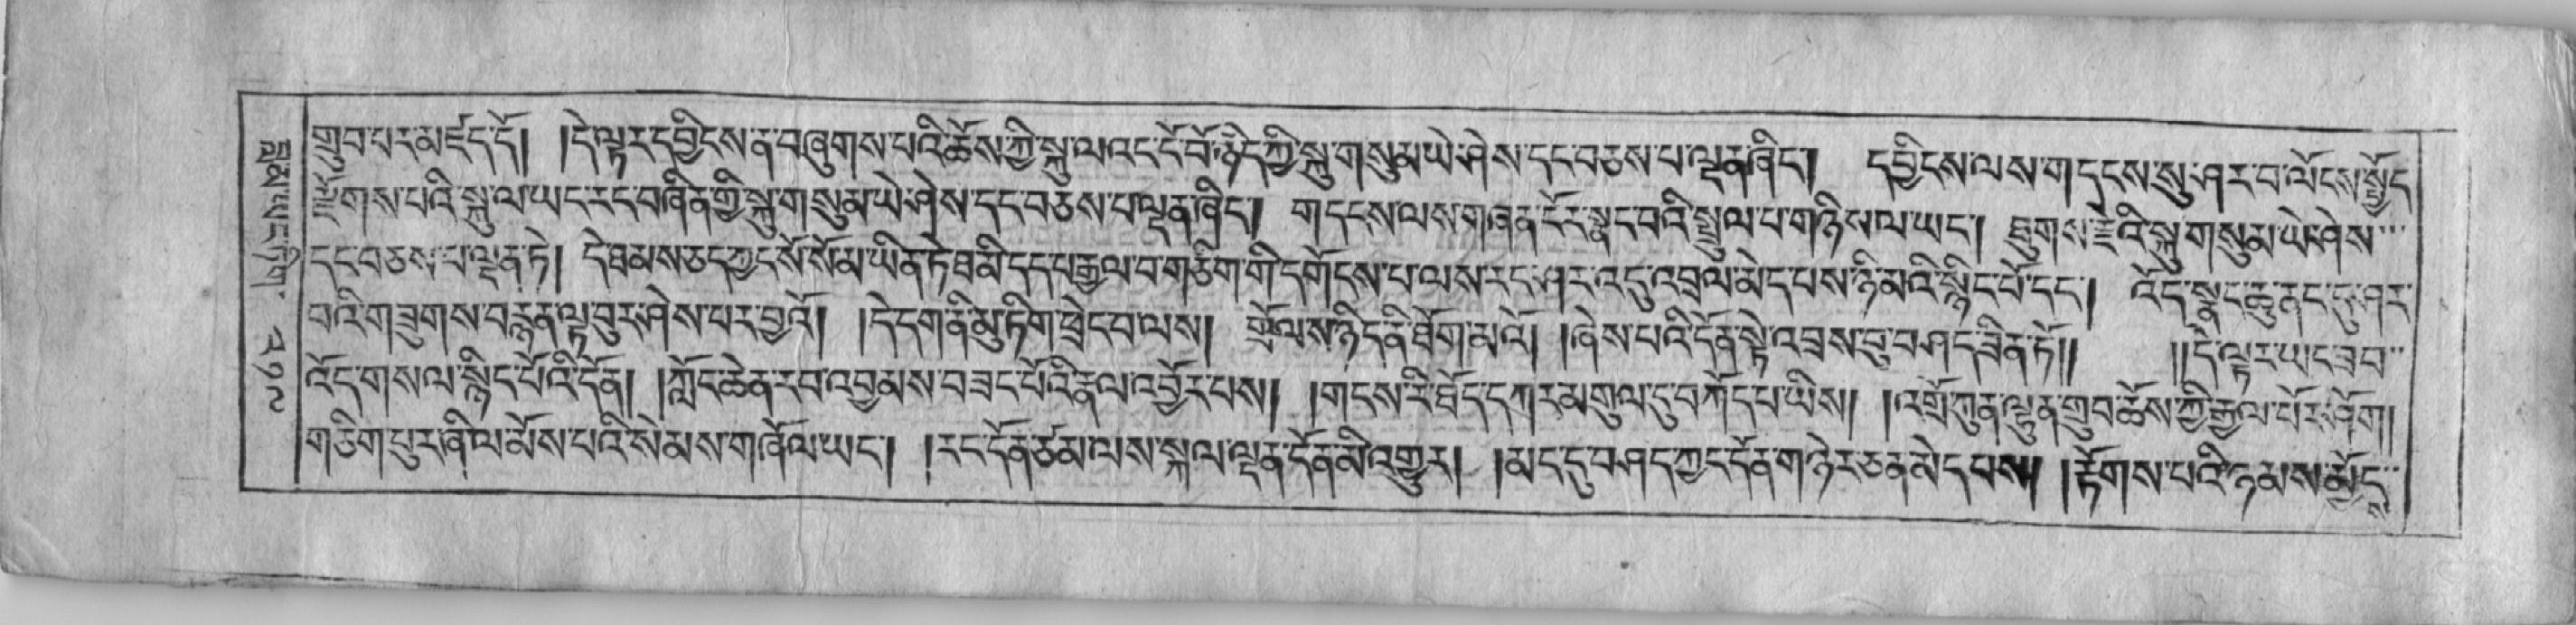 གྲུབ་པར་མཛད་དོ། །དེ་ལྟར་དབྱིངས་ན་བཞུགས་པའི་ཆོས་ཀྱི་སྐུ་ལའང་ངོ་བོ་ཉིད་ཀྱི་སྐུ་གསུམ་ཡེ་ཤེས་དང་བཅས་པ་ལྡན་ཞིང་། དབྱིངས་ལས་གདངས་སུ་ཤར་བ་ལོངས་སྤྱོད
རྫོགས་པའི་སྐུ་ལ་ཡང་རང་བཞིན་གྱི་སྐུ་གསུམ་ཡེ་ཤེས་དང་བཅས་པ་ལྡན་ཞིང་། གདངས་ལས་གཞན་ངོར་སྣང་བའི་སྤྲུལ་པ་གཉིས་ལ་ཡང་། ཐུགས་རྗེའི་སྐུ་གསུམ་ཡེ་ཤེས
དང་བཅས་པ་ལྡན་ཏེ། དེ་ཐམས་ཅད་ཀྱང་སོ་སོ་མ་ཡིན་ཏེ་ཐམི་དད་པ་རྒྱལ་བ་གཅིག་གི་དགོངས་པ་ལས་རང་ཤར་འདུ་འབྲལ་མེད་པས་ཉི་མའི་སྙིང་པོ་དང་། འོད་སྣང་ཆུ་ནང་དུ་ཤར
བའི་གཟུགས་བརྙན་ལྟ་བུར་ཤེས་པར་བྱའོ། །དེ་དག་ནི་མུ་ཏིག་ཕྲེང་བ་ལས། གྲོལ་ས་ཉིད་ནི་ཐོག་མའོ། །ཞེས་པའི་དོན་སྟེ་འབྲས་བུ་བཤད་ཟིན་ཏོ།། །།དེ་ལྟར་ཡང་ཟབ
འོད་གསལ་སྙིང་པོའི་དོན། །ཀློང་ཆེན་རབ་འབྱམས་བཟང་པོའི་རྣལ་འབྱོར་པས། །གངས་རི་ཐོད་དཀར་མགུལ་དུ་བཀོད་པ་ཡིས། །འགྲོ་ཀུན་ལྷུན་གྲུབ་ཆོས་ཀྱི་རྒྱལ་པོར་ཤོག།
གཅིག་པུར་ཞི་ལ་མོས་པའི་སེམས་གཞོལ་ཡང་། །རང་དོན་ཙམ་ལས་སྐལ་ལྡན་དོན་མི་འགྱུར། །མང་དུ་བཤད་ཀྱང་དོན་གཉེར་ཅན་མེད་པས། །རྟོགས་པའི་ཉམས་མྱོང